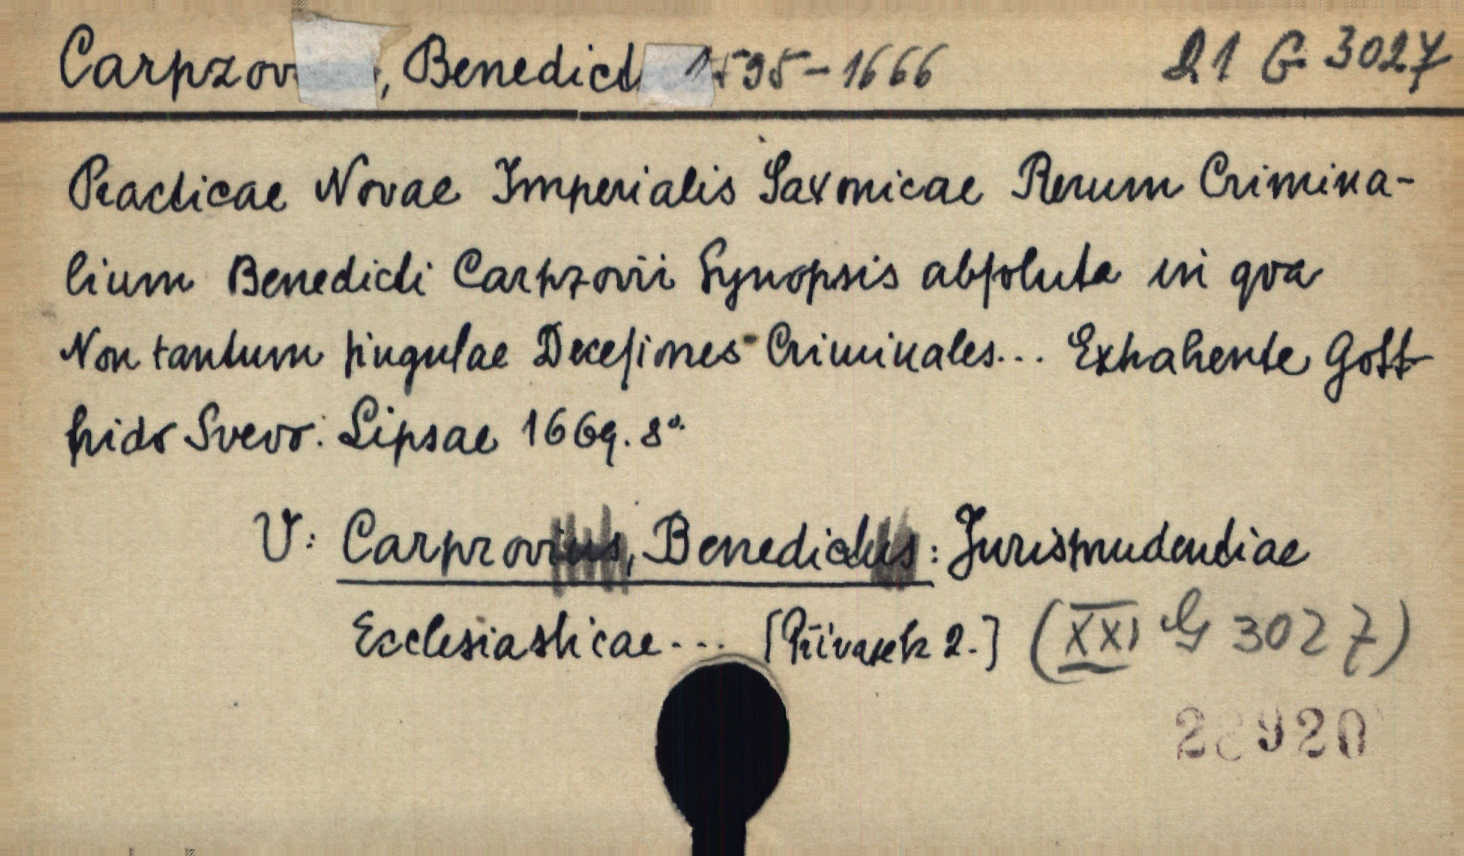 Carpzov, Benedict 1595-1666 21 G 3027
Practicae Novae Imperialis Saxonicae Rerum Crimina-
lium Benedicti Carpzovii Synopsis absoluta in qva
Non tantum singulae Decesiones Criminales... Extrahente Gott
frido Svevo. Lipsae 1669. 8°.
V: Carpzovius, Benedictus: Jurisprudendiae
Ecclesiasticae... [Přívazek 2.] (XXI G 3027)
28920